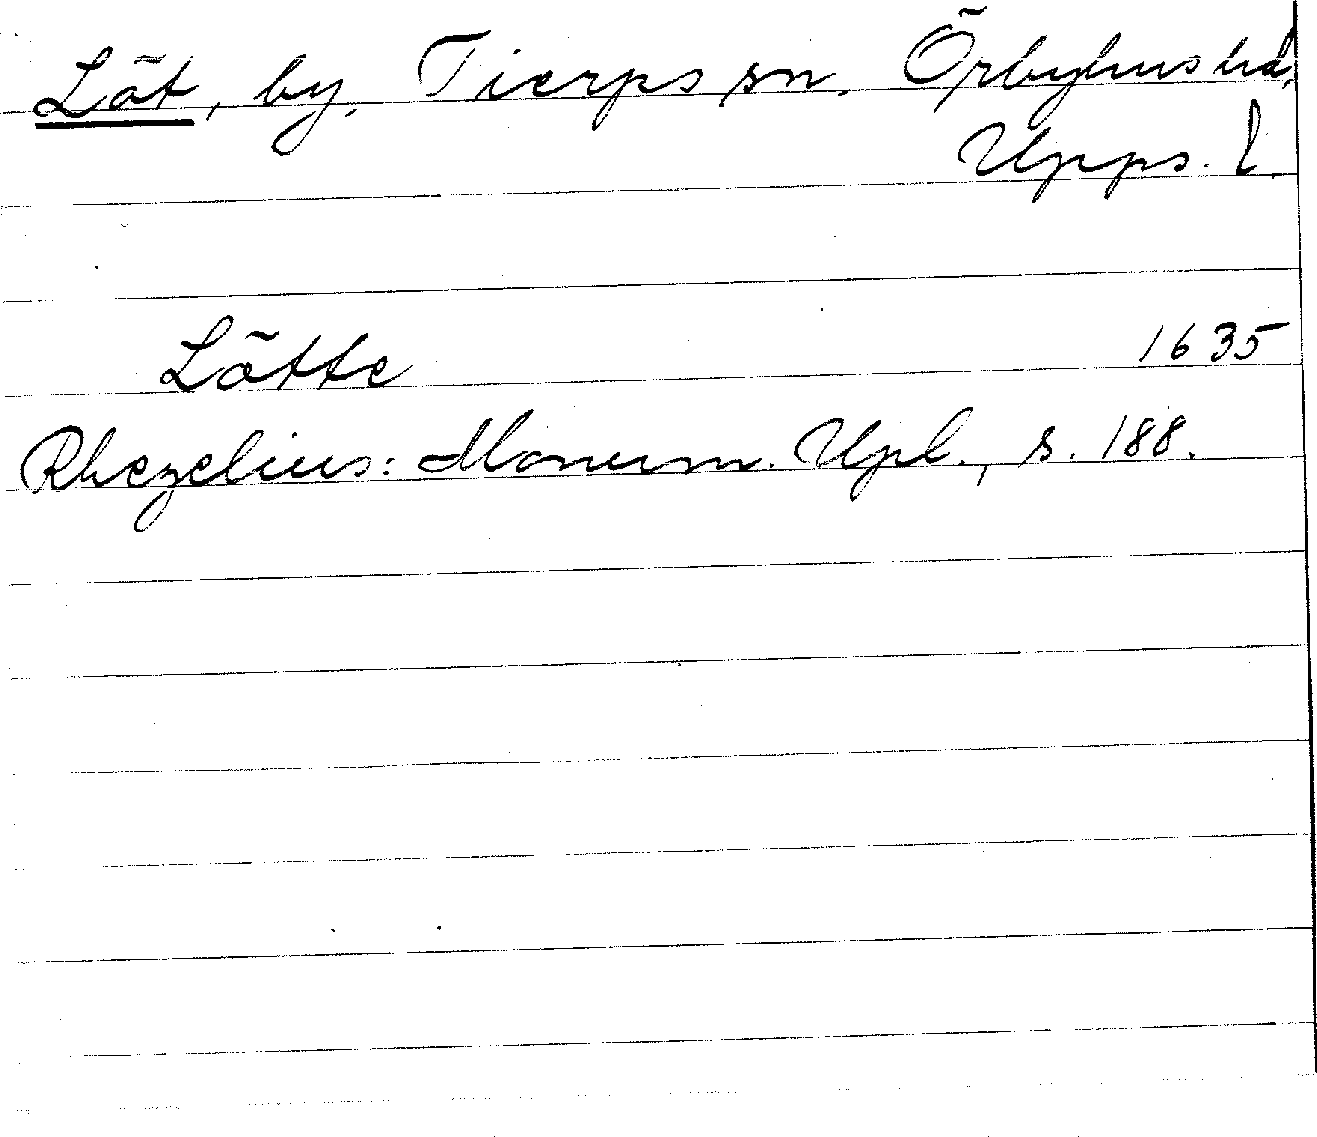 Löt, by, Tierps sn. Örbyhus hd,
Upps. l.
Lötte 1635
Rhezelius: Monum. Upl., s. 188.